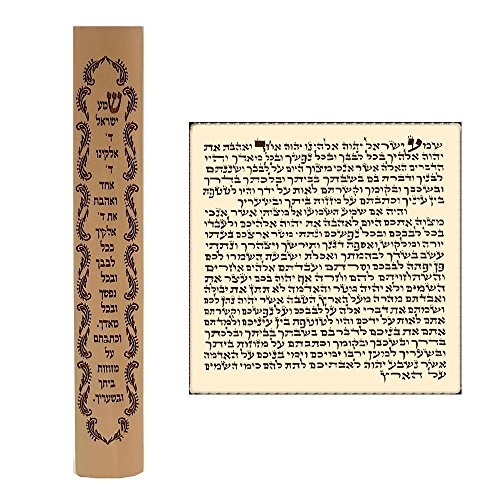 שמע
ישראל
ד'
אלקינו
ד'
אחד
ואהבת
את ד'
אלקיך
בכל
לבבך
ובכל
נפשך
ובכל
מאדך.
וכתבתם
על
מזוזות
ביתך
ובשעריך.
שמע ישראל יהוה אלהינו יהוה אחד ואהבת את
יהוה אלהיך בכל לבבך ובכל נפשך ובכל מאדך והיו
הדברים האלה אשר אנכי מצוך היום על לבבך ושננתם
לבניך ודברת בם בשבתך בביתך ובלכתך בדרך
ובשכבך ובקומך וקשרתם לאות על ידך והיו לטטפת
בין עיניך וכתבתם על מזזות ביתך ובשעריך
והיה אם שמע תשמעו אל מצותי אשר אנכי
מצוה אתכם היום לאהבה את יהוה אלהיכם ולעבדו
בכל לבבכם ובכל נפשכם ונתתי מטר ארצכם בעתו
יורה ומלקוש ואספת דגנך ותירשך ויצהרך ונתתי
עשב בשדך לבהמתך ואכלת ושבעת השמרו לכם
פן יפתה לבבכם וסרתם ועבדתם אלהים אחרים
והשתחויתם להם וחרה אף יהוה בכם ועצר את
השמים ולא יהיה מטר והאדמה לא תתן את יבולה
ואבדתם מהרה מעל הארץ הטבה אשר יהוה נתן לכם
ושמתם את דברי אלה על לבבכם ועל נפשכם וקשרתם
אתם לאות על ידכם והיו לטוטפת בין עיניכם ולמדתם
אתם את בניכם לדבר בם בשבתך בביתך ובלכתך
בדרך ובשכבך ובקומך וכתבתם על מזוזות ביתך
ובשעריך למען ירבו ימיכם וימי בניכם על האדמה
אשר נשבע יהוה לאבתיכם לתת להם כימי השמים
על הארץ